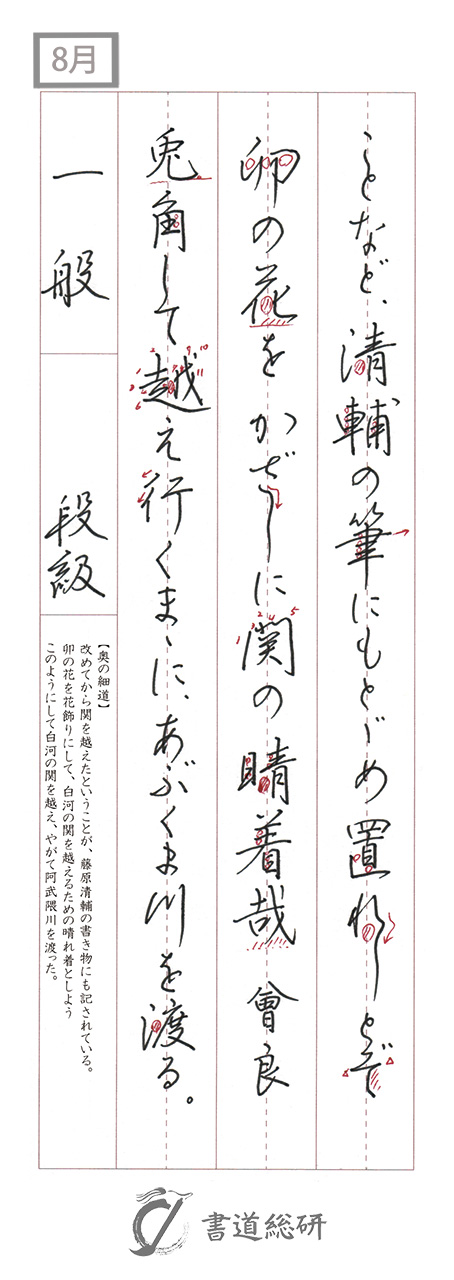 8月
ことなど、清輔の筆にもとゞめ置れしとぞ
卯の花をかざしに関の晴着哉 曾良
兎角して越え行くまゝに、あぶくま川を渡る。
一般
段級
【奥の細道】
改めてから関を越えたということが、藤原清輔の書き物にも記されている。
卯の花を花飾りにして、白河の関を越えるための晴れ着としよう
このようにして白河の関を越え、やがて阿武隈川を渡った。
書道総研